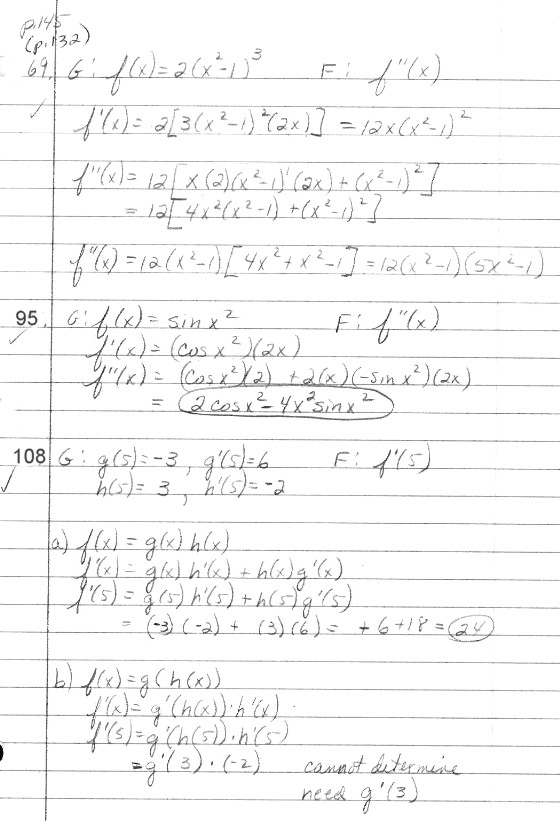 p.145
(p.132)
69. G: f(x) = 2(x²-1)³ F: f''(x)
f'(x) = 2[3(x²-1)²(2x)] = 12x(x²-1)²
f''(x) = 12[x(2)(x²-1)'(2x) + (x²-1)²]
= 12[4x²(x²-1) + (x²-1)²]
f''(x) = 12(x²-1)[4x²+x²-1] = 12(x²-1)(5x²-1)
95. G: f(x) = sin x² F: f''(x)
f'(x) = (cos x²)(2x)
f''(x) = (cos x²)(2) + 2(x)(-sin x²)(2x)
= 2cos x² - 4x² sin x²
108 G: g(5) = -3, g'(5) = 6 F: f'(5)
h(5) = 3, h'(5) = -2
a) f(x) = g(x) h(x)
f'(x) = g(x) h'(x) + h(x) g'(x)
f'(5) = g(5) h'(5) + h(5) g'(5)
= (-3)(-2) + (3)(6) = +6+18 = 24
b) f(x) = g(h(x))
f'(x) = g'(h(x))·h'(x)
f'(5) = g'(h(5))·h'(5)
= g'(3)·(-2) cannot determine
need g'(3)